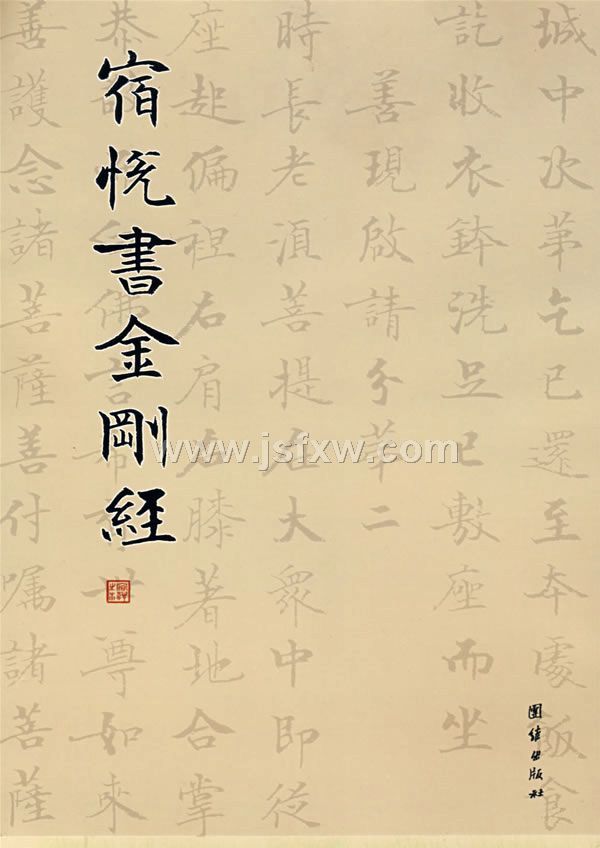 宿悅書金剛經
城中次苐乞已還至夲處飯食
訖收衣鉢洗足已敷座而坐
善現啟請分苐二
時長老湏菩提在大眾中即從
座起偏袒右肩右膝著地合掌
恭佛言希尊如來
善護念諸菩薩善付囑諸菩薩
團結出版社
www.jsfxw.com